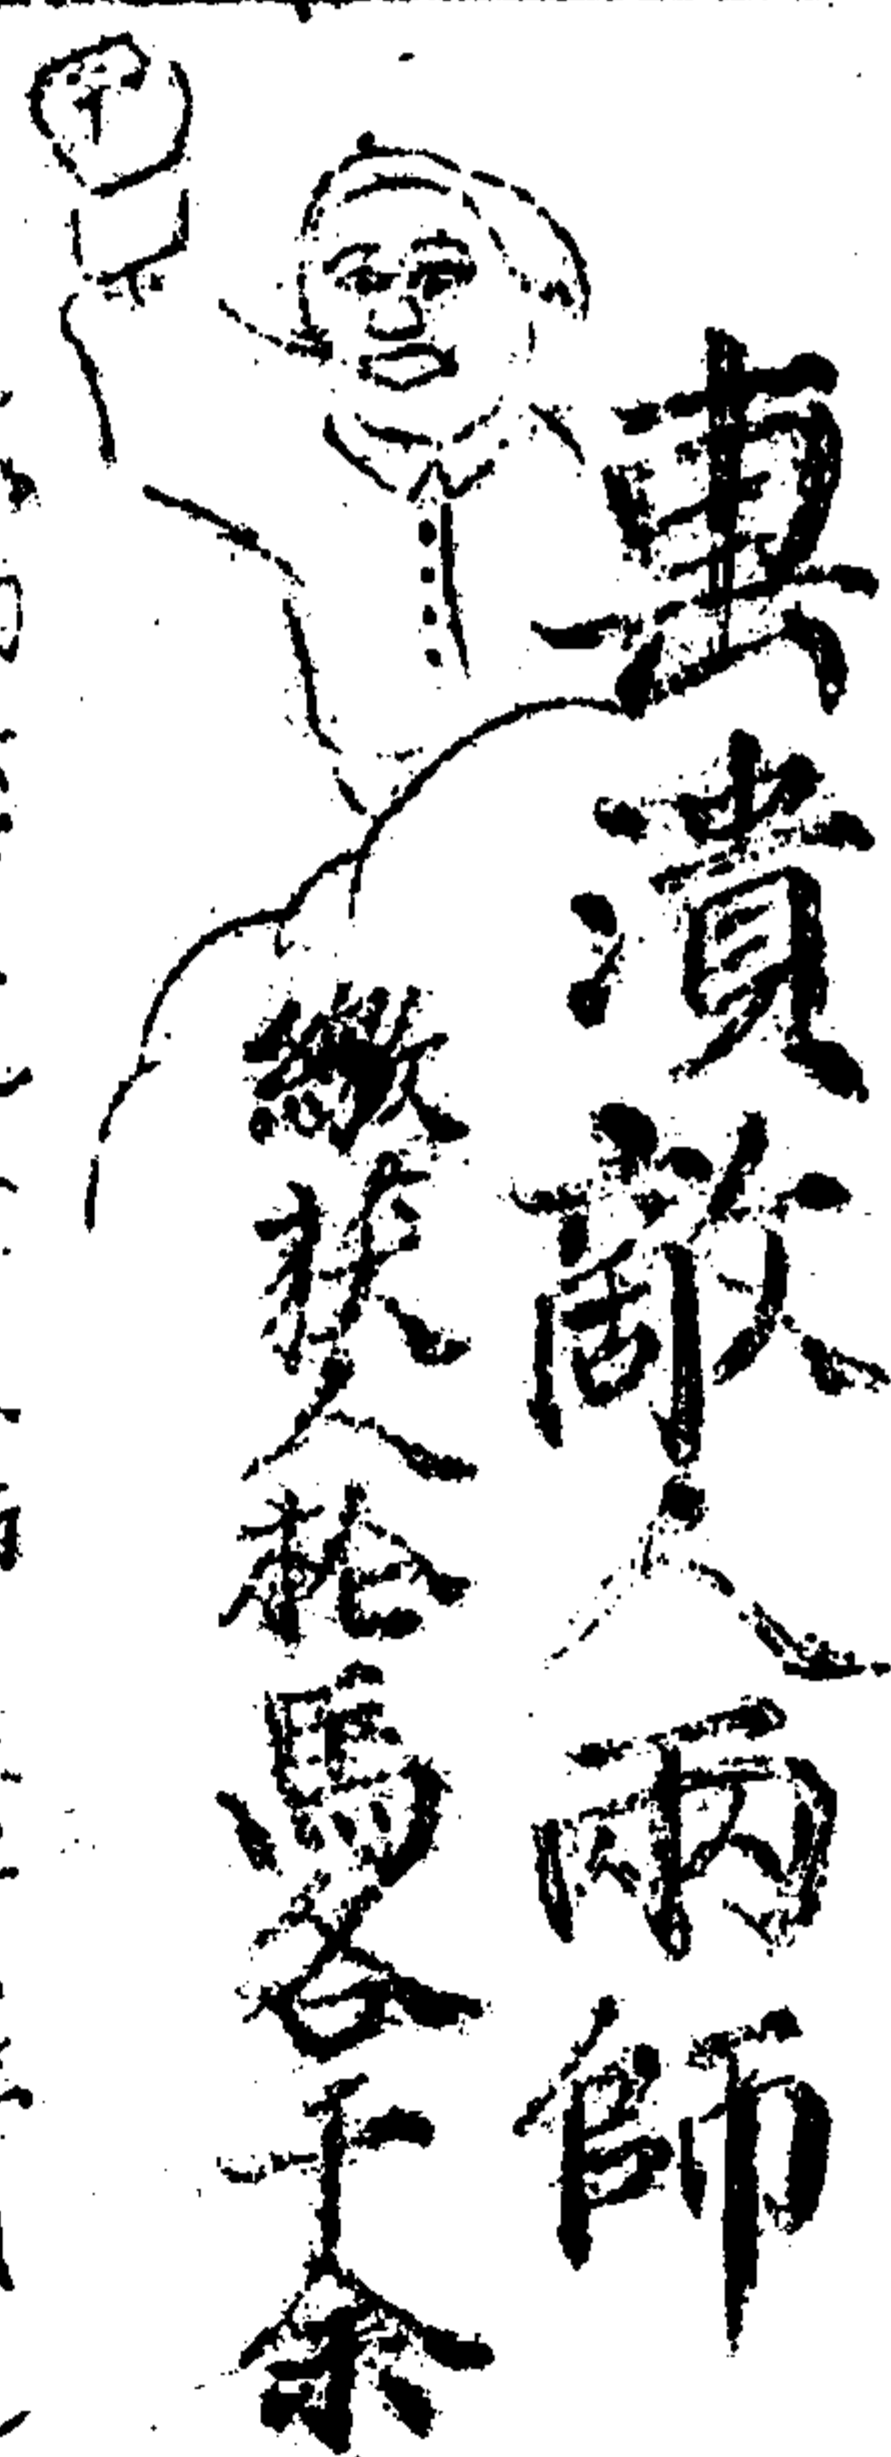 潰敵人兩師
繳获人枪馬各千余